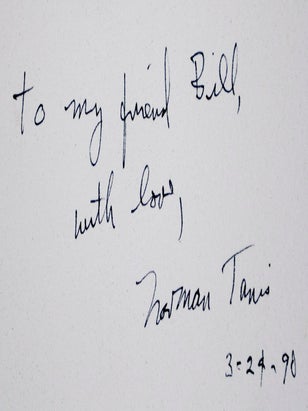 to my friend Bill,
with love,
Norman Tanis
3-24-90